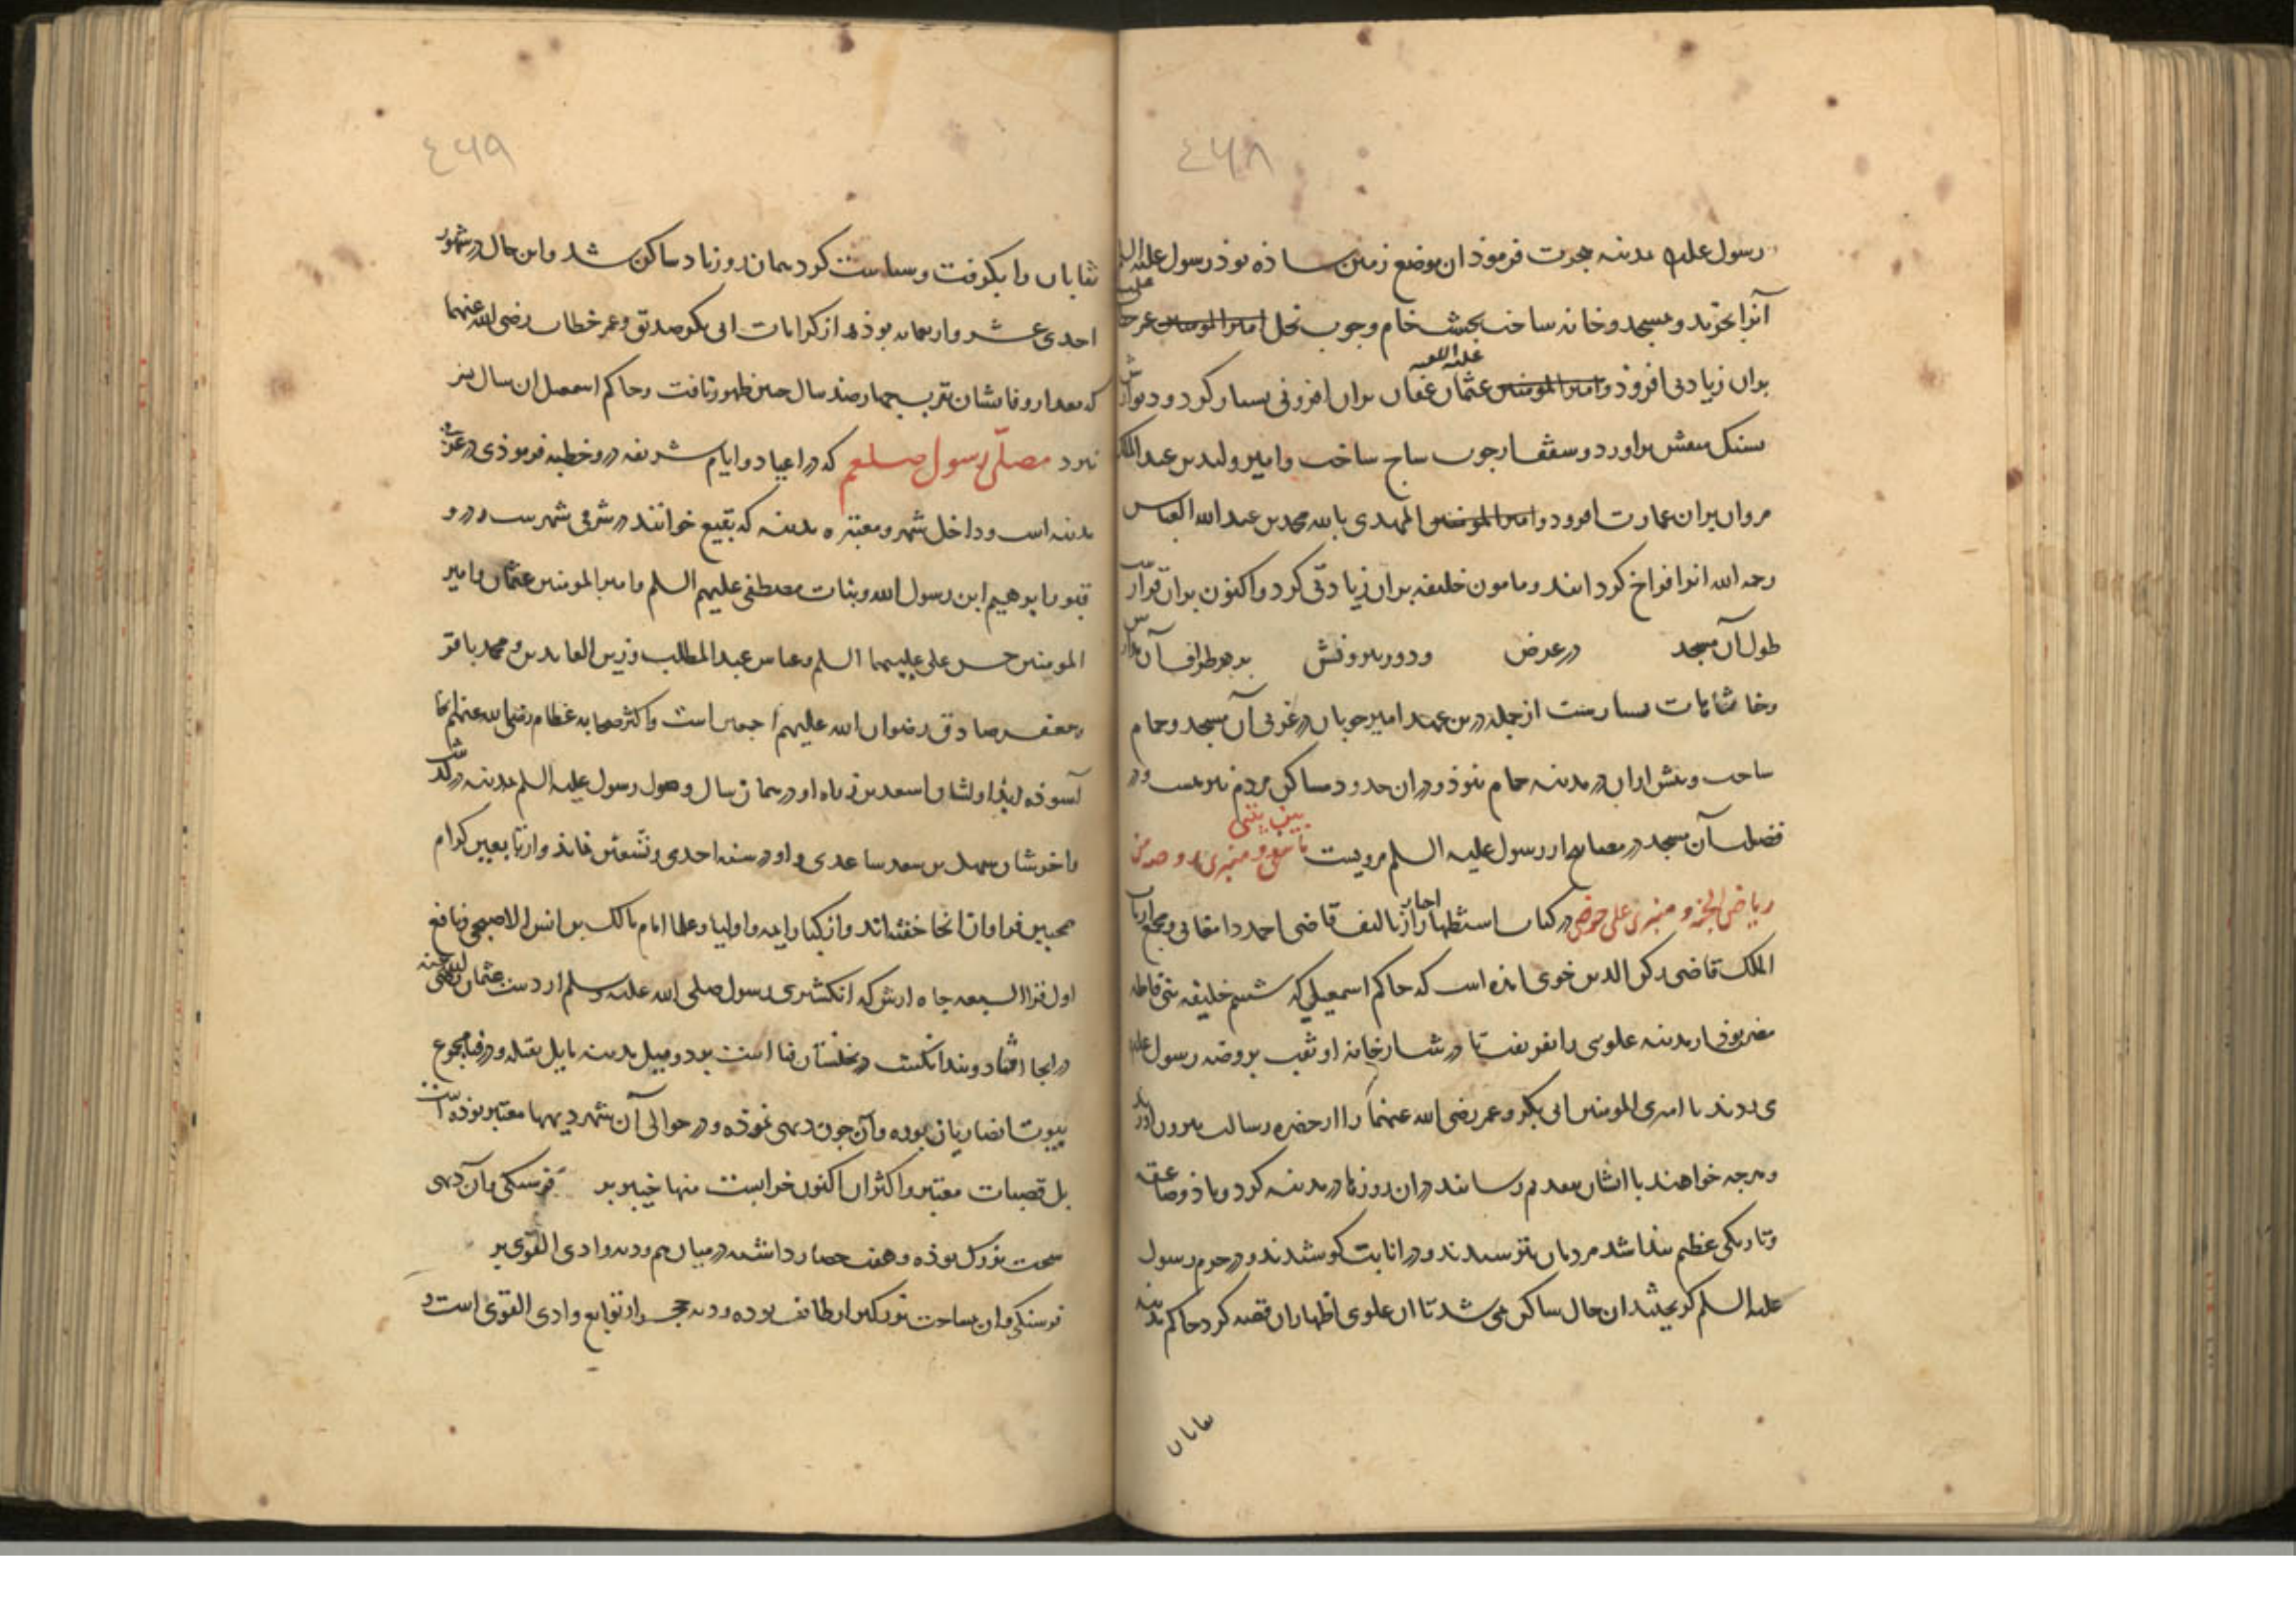 ٤٦٨
رسول علیه مدینه هجرت فرموذ ان موضع زمین ساذه بوذ رسول علیه السلم
آنرا بخرید و مسجد و خانه ساخت بخشت خام و چوب نخل امیرالمومنین عمر خطاب
بران زیادتی افزوذ و امیرالمومنین عثمان عفان بران افزونی بسیار کرد و دیوارش
علیه اللعنه
بسنک منقش براورد و سقفها از چوب ساج ساخت و امیر ولید بن عبد الملک
مروان بران عمارت افزود و امیرالمومنین المهدی بالله محمد بن عبد الله العباس
رحمه الله انرا فراخ کردانید و مامون خلیفه بران زیادتی کرد و اکنون بران قرار
طول آن مسجد در عرض و دور بیرونش بر هر طراف آن مدارس
و خانقاهات بسیارست از جمله درین عهد امیر چوبان در غربی آن مسجد و حمام
ساخت و پیش ازان در مدینه حمام نبوذ و دران حدود مساکن مردم نیز هست و در
فضیلت آن مسجد در مصابیح از رسول علیه السلم مرویست ما بین بیتی و منبری روضه من
ریاض الجنة و منبری علی حوضی در کتاب استظهار اخبار از تالیف قاضی احمد دامغانی و مجمع ارباب
الملک قاضی رکن الدین خویی امده است که حاکم اسمعیلی که ششم خلیفه بنی فاطمه
مصر بوذ از مدینه علوی را بفریفت تا در شب از خانه او نقب بروضه رسول علیه
می زدند تا امیری المومنین ابی بکر و عمر رضی الله عنهما را از حضره رسالت بیرون اورند
و هرچه خواهند با ایشان بتقدیم رسانند دران روزها در مدینه کرد و باذ و صاعقه
و تاریکی عظیم پیذا شد مردمان بترسیدند و در انابت کوشیدند و در حرم رسول
علیه السلم کریختند ان حال ساکن نمی شد تا ان علوی اظهار ان قصه کرد حاکم مدینه
نقابان
٤٦٩
نقابان را بکرفت و سیاست کرد همان روز باد ساکن شد و این حال در شهور
احدی عشر و اربعمایه بوذه از کرامات ابی بکر صدیق و عمر خطاب رضی الله عنهما
که بعد از وفاتشان بقریب چهارصد سال چنین ظهور یافت و حاکم اسمعیل ان سال بسر
نبرد مصلی رسول صلعم که در اعیاد و ایام شریفه درو خطبه فرموذی در غربی
مدینه است و داخل شهر و مقبره مدینه که بقیع خوانند در شرقی شهرست و درو
قبور ابرهیم ابن رسول الله و بنات مصطفی علیهم السلم و امیر المومنین عثمان و امیر
المومنین حسن علی علیهما السلم و عباس عبد المطلب و زین العابدین و محمد باقر
و جعفر صادق رضوان الله علیهم اجمعین است و اکثر صحابه عظام رضی الله عنهم انجا
آسوذه اند اولشان اسعد بن زراه او در همان سال وصول رسول علیه السلم بمدینه درکذشت
و اخرشان سهل بن سعد ساعدی و او در سنه احدی و تسعین نماند و از تابعین کرام
محبین فراوان انجا خفته اند و از کبار ایمه و اولیا و علما امام مالک بن انس الاصبحی و نافع
اول قرا السبعه چاه اریس که انکشتری رسول صلی الله علیه وسلم از دست عثمان رضی الله عنه
در انجا افتاد و پیدا نکشت در نخلستان قبا است بر دو میل مدینه مایل بقبله و در قبا مجموع
بیوت انصاریان بوده و آن چون دیهی نموده و در حوالی آن شهر دیهها معتبر بوذه است
بل قصبات معتبر و اکثر ان اکنون خرابست منها خیبر بر فرسنکی و آن دیهی
سخت بزرک بوذه و هفت حصار داشته در میان هم و دیه وادی القری بر
فرسنکی و ان بمساحت بزرکتر از طایف بوده و دیه حجر از توابع وادی القری است و